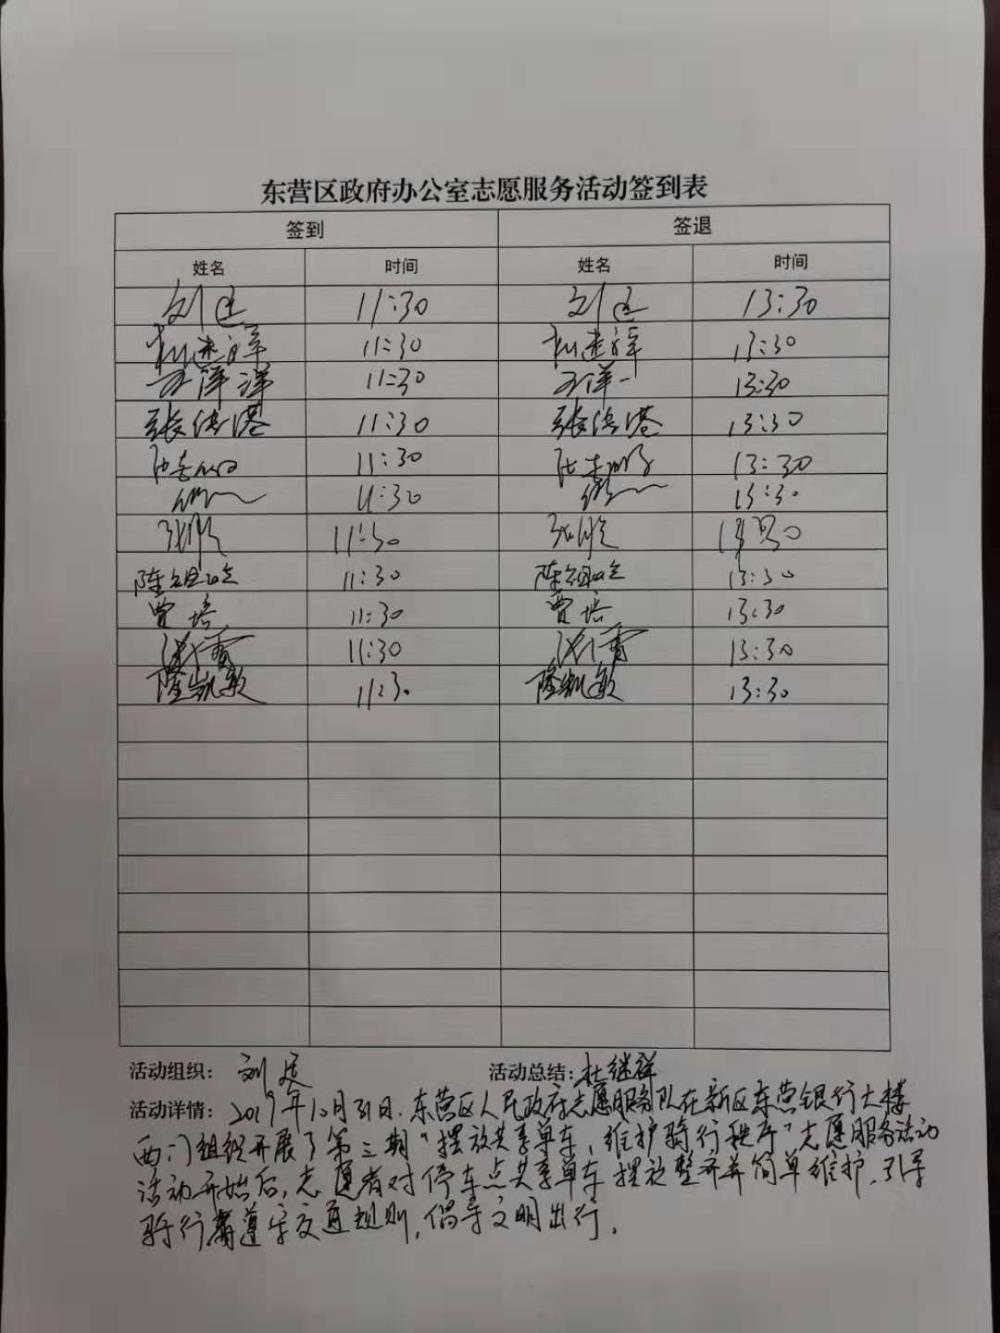 东营区政府办公室志愿服务活动签到表
签到 签退
姓名 时间 姓名 时间
刘 11:30 刘 13:30
11:30 13:30
王洋洋 11:30 王洋 13:30
张传港 11:30 张传港 13:30
11:30 13:30
11:30 13:30
张 11:30 张 13:30
陈祖 11:30 陈祖 13:30
贾培 11:30 贾培 13:30
11:30 13:30
隆凯敏 11:30 隆凯敏 13:30
活动组织: 刘 活动总结: 杜继祥
活动详情: 2019年10月31日,东营区人民政府志愿服务队在新区东营银行大楼
西门组织开展了第三期“摆放共享单车,维护骑行秩序”志愿服务活动
活动开始后,志愿者对停车点共享单车摆放整齐并简单维护,引导
骑行者遵守交通规则,倡导文明出行。